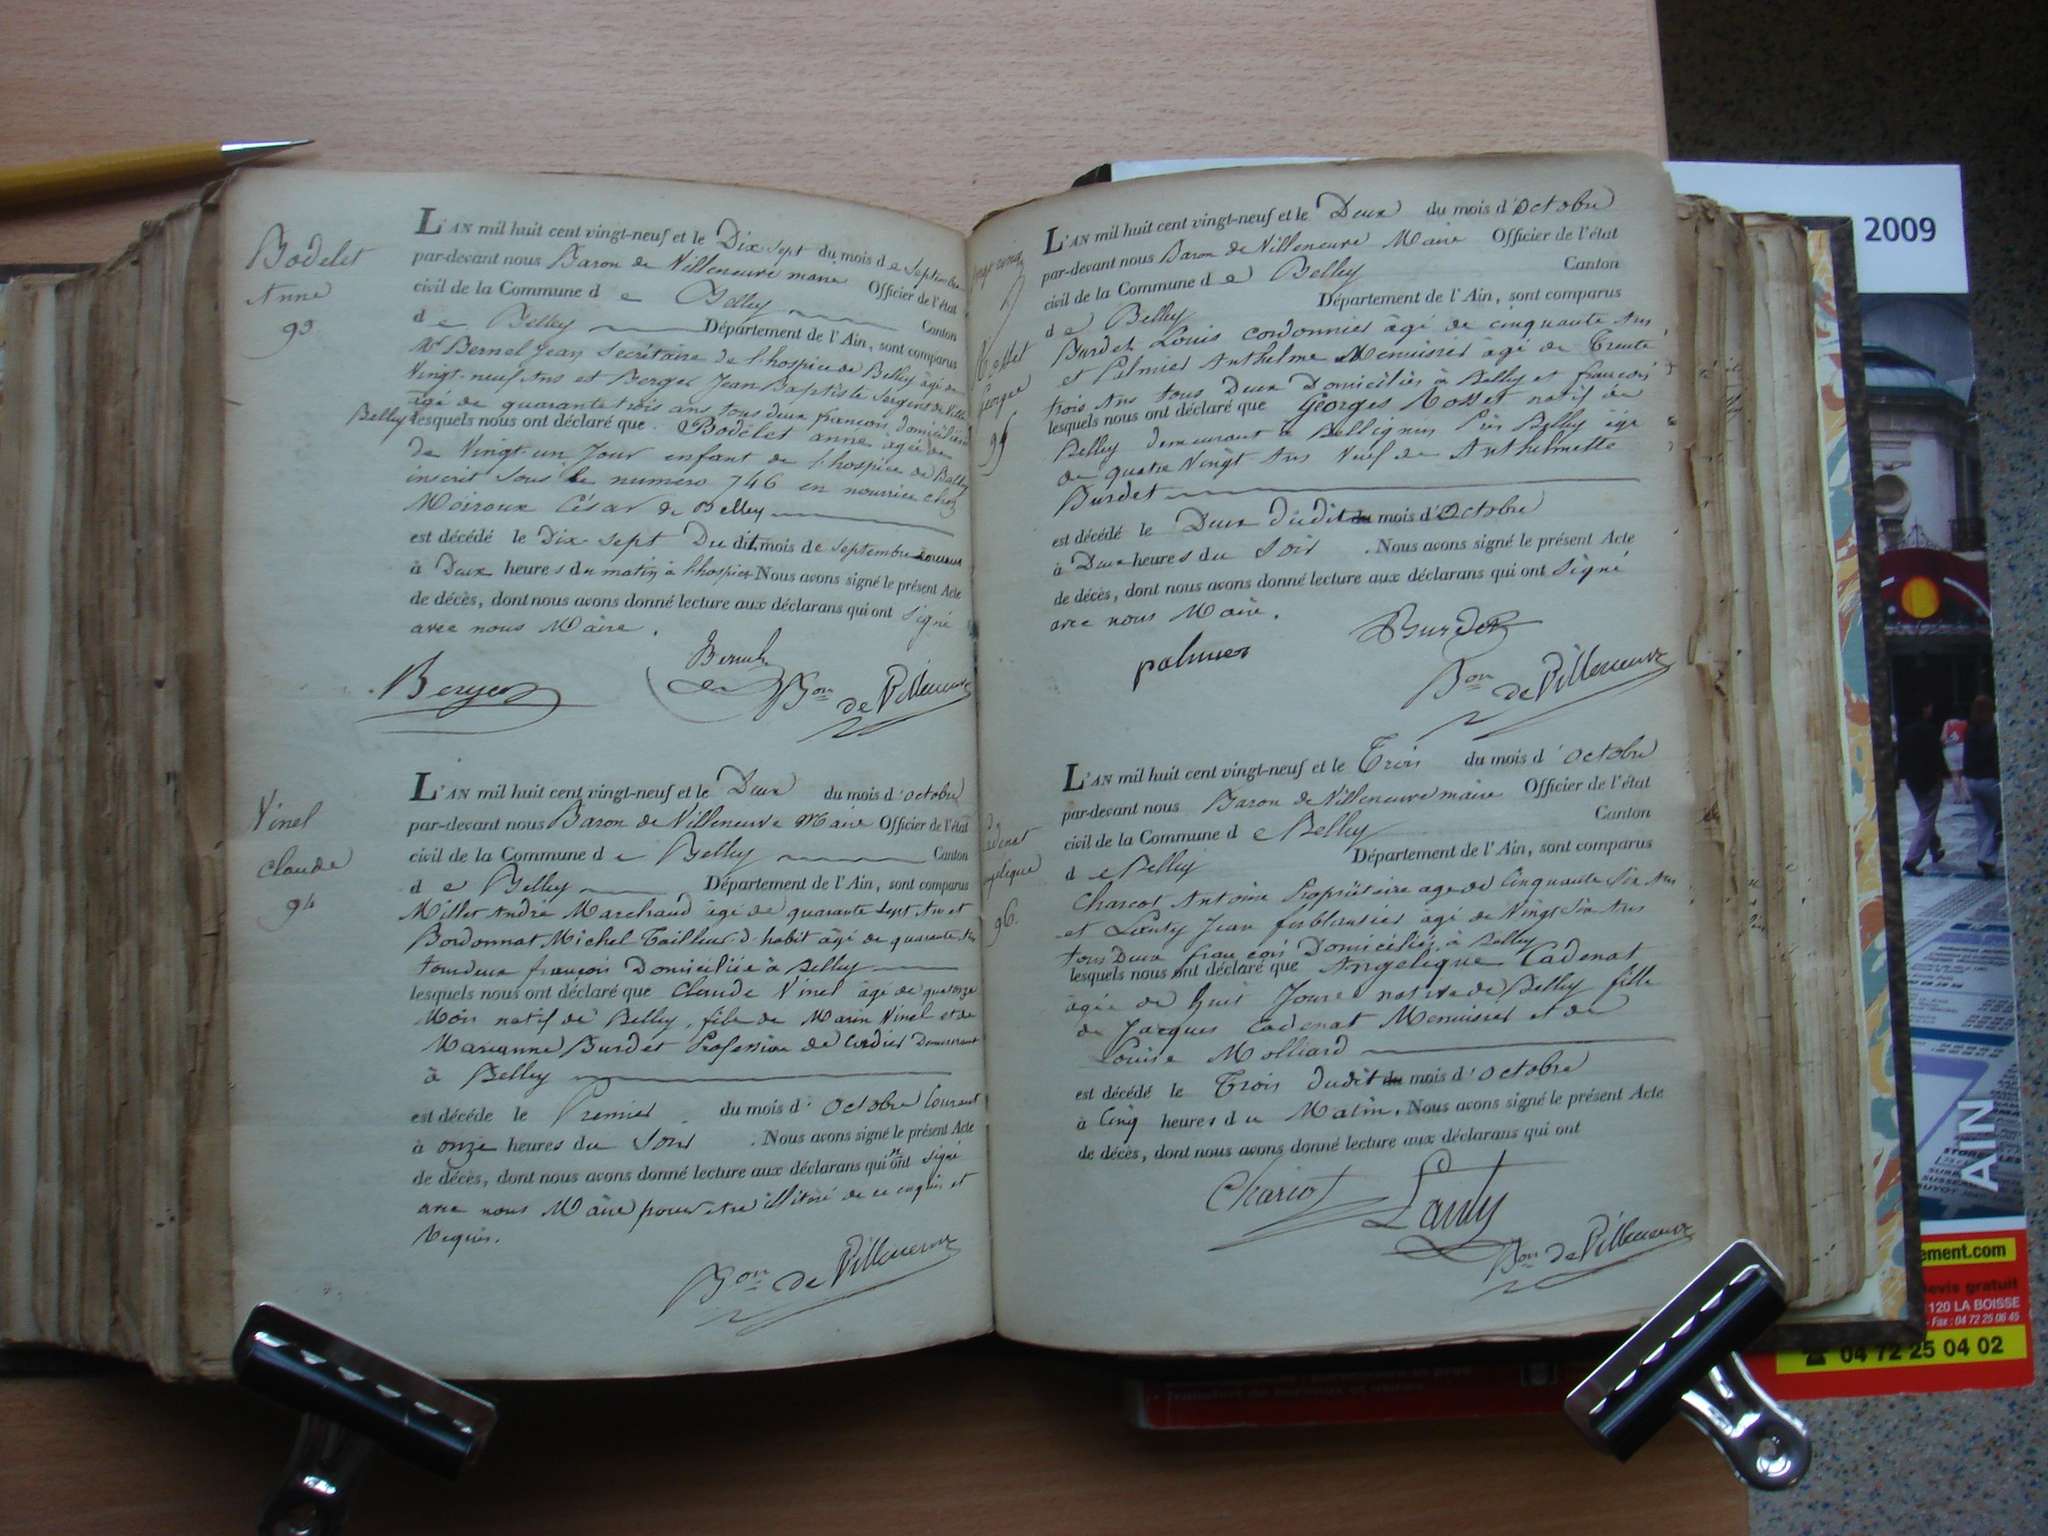 Bodelet
Anne
93
L'AN mil huit cent vingt-neuf et le Dix Sept du mois de Septembre
par-devant nous Baron de Villeneuve maire Officier de l'état
civil de la Commune de Belley Canton
de Belley Département de l'Ain, sont comparus
Mr Bernel Jean Secrétaire de l'hospice de Belley âgé de
Vingt-neuf Ans et Berger Jean Baptiste Sergent de Ville
âgé de quarante trois ans tous deux françois domiciliés à
Belley lesquels nous ont déclaré que Bodelet anne âgée de
de Vingt-un Jour enfant de l'hospice de Belley
inscrit sous le numero 746 en nourrice chez
Moiroux César de Belley
est décédé le Dix Sept Du dit mois de septembre courant
à Deux heures du matin à l'hospice Nous avons signé le présent Acte
de décès, dont nous avons donné lecture aux déclarans qui ont Signé
avec nous Maire.
Berger Bernel Bon de Villeneuve
Vinel
Claude
94
L'AN mil huit cent vingt-neuf et le Deux du mois d'octobre
par-devant nous Baron de Villeneuve Maire Officier de l'état
civil de la Commune de Belley Canton
de Belley Département de l'Ain, sont comparus
Millet André Marchand âgé de quarante Sept Ans et
Bordonnat Michel Tailleur d'habit âgé de quarante
tous deux françois Domiciliée à Belley
lesquels nous ont déclaré que Claude Vinel âgé de quatorze
Mois natif de Belley, fils de Marin Vinel et de
Marianne Burdet Profession de Cordier Demeurant
à Belley
est décédé le Premier du mois d'Octobre Courant
à onze heures du Soir. Nous avons signé le présent Acte
de décès, dont nous avons donné lecture aux déclarans qui n'ont signé
avec nous Maire pour etre illitéré de ce enquis et
Requis.
Bon de Villeneuve
L'AN mil huit cent vingt-neuf et le Deux du mois d'Octobre
par-devant nous Baron de Villeneuve Maire Officier de l'état
civil de la Commune de Belley Canton
de Belley Département de l'Ain, sont comparus
Burdet Louis cordonnier âgé de cinquante Ans
et Palmier Anthelme Menuisier âgé de Trente
trois Ans tous Deux Domiciliés à Belley et françois
lesquels nous ont déclaré que Georges Rosset natif de
Belley demeurant à Bellignin Près Belley âgé
de quatre Vingt Ans Veuf de Anthelmette
Burdet
est décédé le Deux dudit du mois d'Octobre
à Deux heures du Soir. Nous avons signé le présent Acte
de décès, dont nous avons donné lecture aux déclarans qui ont Signé
avec nous Maire.
palmier Burdet
Bon de Villeneuve
George
95
L'AN mil huit cent vingt-neuf et le Trois du mois d'Octobre
par-devant nous Baron de Villeneuve maire Officier de l'état
civil de la Commune de Belley Canton
de Belley Département de l'Ain, sont comparus
Charcot Antoine Propriétaire age de Cinquante Six Ans
et Lanty Jean ferblantier âgé de Vingt Six Ans
tous Deux françois Domiciliés à Belley
lesquels nous ont déclaré que Angelique Cadenat
âgée de huit Jours native de Belley fille
de Jacques Cadenat Menuisier et de
Louise Molliard
est décédé le Trois dudit du mois d'Octobre
à Cinq heures du Matin. Nous avons signé le présent Acte
de décès, dont nous avons donné lecture aux déclarans qui ont
Charcot Lanty
Bon de Villeneuve
96.
2009
AIN
ement.com
devis gratuit
120 LA BOISSE
- Fax : 04 72 25 06 45
04 72 25 04 02